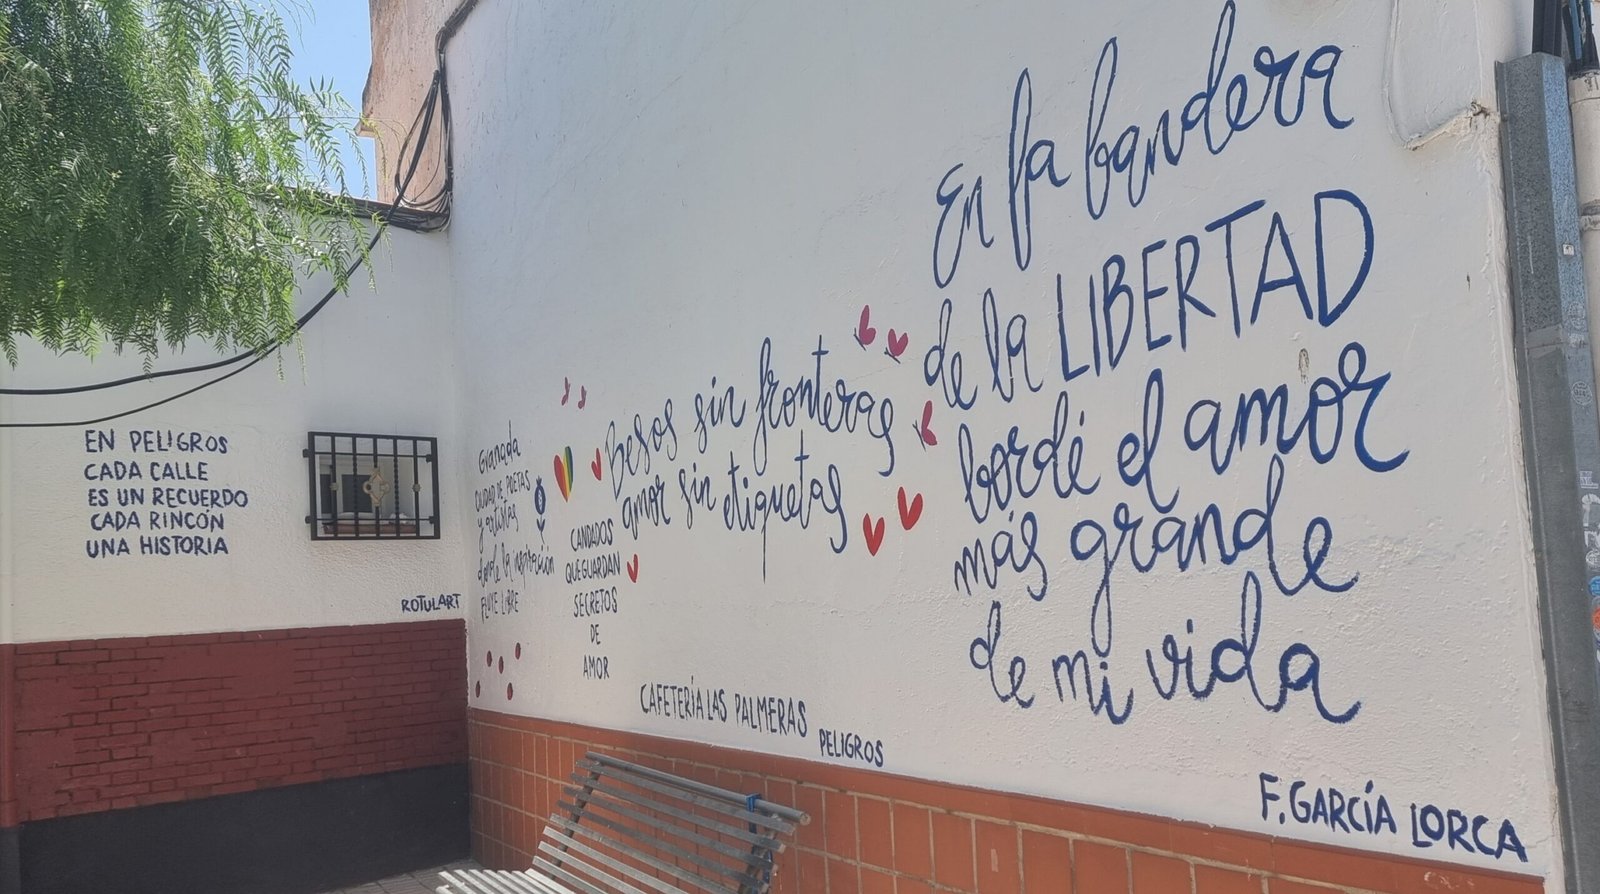 EN PELIGROS
CADA CALLE
ES UN RECUERDO
CADA RINCÓN
UNA HISTORIA
ROTULART
Granada
CIUDAD DE POETAS
y artistas
donde la inspiración
FLUYE LIBRE
CANDADOS
QUE GUARDAN
SECRETOS
DE
AMOR
Besos sin fronteras
amor sin etiquetas
CAFETERÍA LAS PALMERAS
PELIGROS
En la bandera
de la LIBERTAD
bordé el amor
más grande
de mi vida
F. GARCÍA LORCA